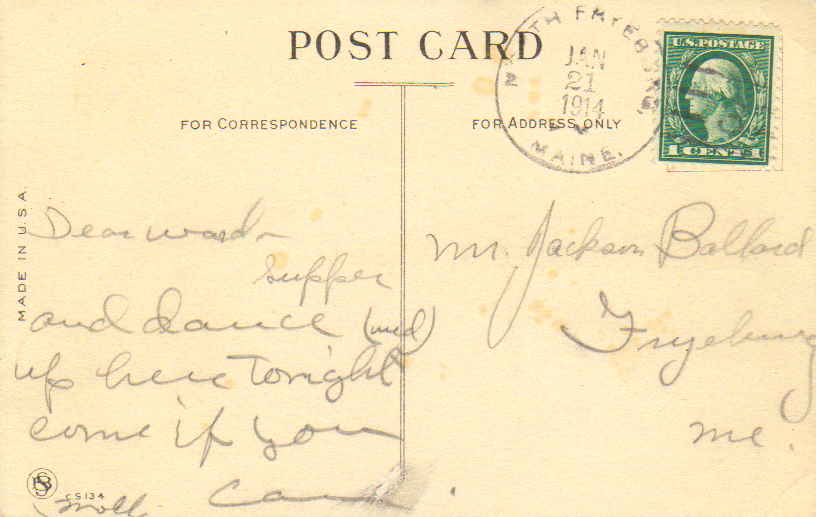 POST CARD
NORTH FRYEBURG
JAN
21
1914
MAINE.
U.S. POSTAGE
1 CENT 1
FOR CORRESPONDENCE
FOR ADDRESS ONLY
MADE IN U.S.A.
Dear
supper
and dance (wed)
up here tonight
come if you
can.
Moll
Mr. Jackson Ballard
Fryeburg
Me.
CS134